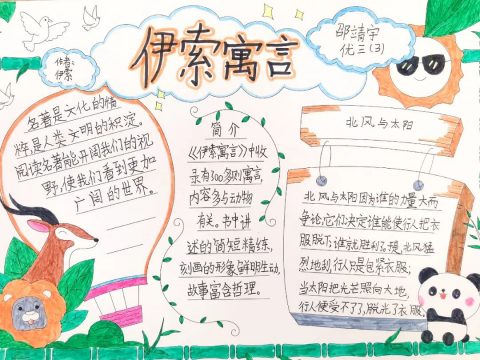 伊索寓言
邵靖宇
优三(3)
作者:
伊索
名著是文化的精
粹是人类文明的积淀。
阅读名著能开阔我们的视
野,使我们看到更加
广阔的世界。
简介
《伊索寓言》中收
录有300多则寓言,
内容多与动物
有关。书中讲
述的简短精练,
刻画的形象鲜明生动,
故事富含哲理。
北风与太阳
北风与太阳因为谁的力量大而
争论,它们决定谁能使行人把衣
服脱下,谁就胜利了,北风猛
烈地刮,行人只是包紧衣服;
当太阳把光芒照向大地,
行人便受不了了,脱光了衣服。